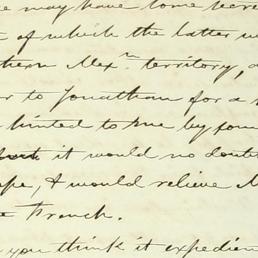 may have some secre
of which the latter w
thern Mex.n territory, a
or to Jonathan for a
hinted to me by
but it would no doubt
ope, & would relieve M
e French.
you think it expedien